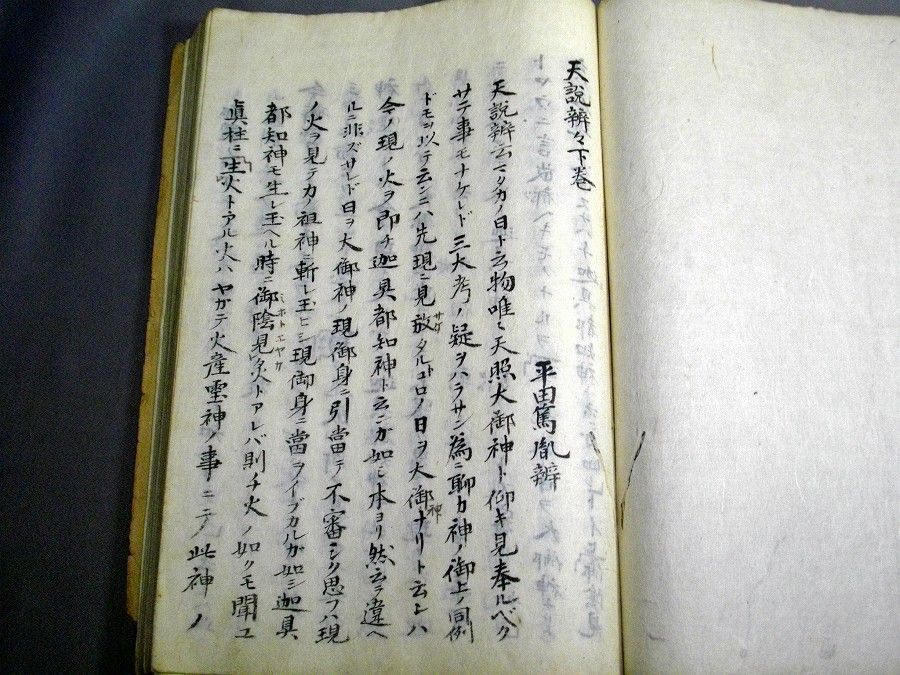 天說辨々下卷
平田篤胤辨
天說辨云マタカノ日ト云物唯ニ天照大御神ト仰キ見奉ルベク
サテ事モナケレド三大考ノ疑ヲハラサン為ニ聊カ神ノ御上ノ同例
ドモヲ以テ云ンニハ先現ニ見放サケタルコロノ日ヲ大御神ナリト云ンハ
今ノ現ノ火ヲ即チ迦具都知神ト云ンガ如シ本ヨリ然云ヲ違ヘ
ルニ非ズサレド日ヲ大御神ノ現御身ニ引當テ不審シク思フハ現
ノ火ヲ見テカノ祖神ニ斬レ玉ヒシ現御身ニ當ヲイブカルガ如シ迦具
都知神モ生レ玉ヘル時ニ御陰ミホト見炙エヤケトアレバ則チ火ノ如クモ聞ユ
眞柱ニ生火トアル火ハヤガテ火産靈神ノ事ニテ此神ノ